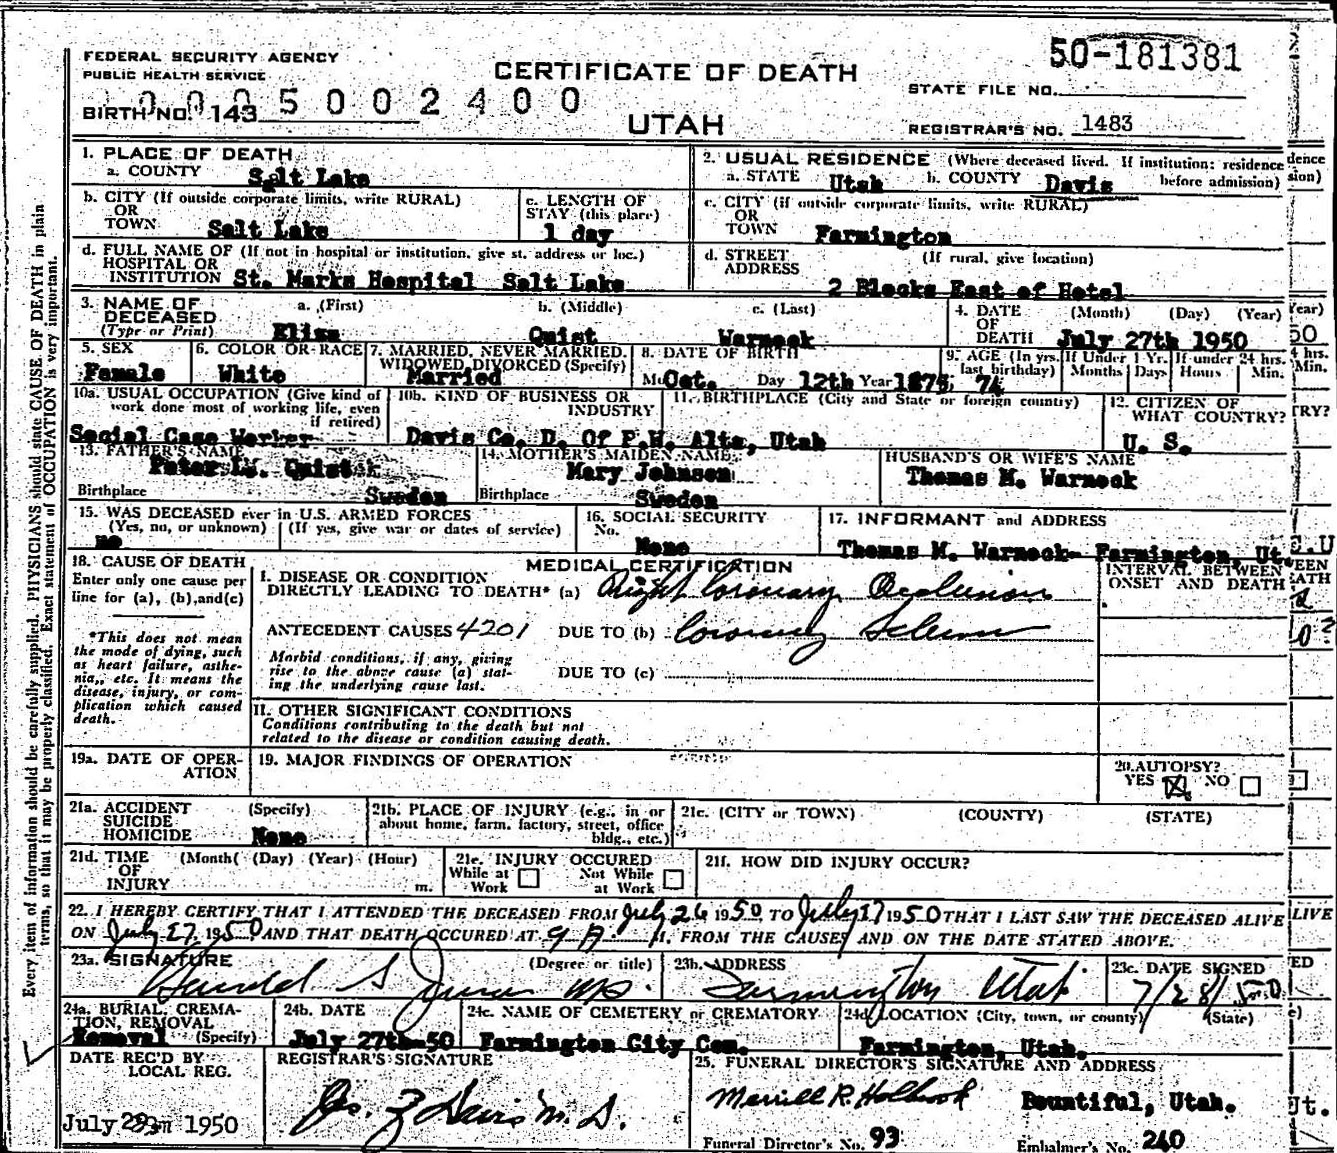 50-181381
FEDERAL SECURITY AGENCY
PUBLIC HEALTH SERVICE
CERTIFICATE OF DEATH
STATE FILE NO.
BIRTH NO. 143
0005002400
UTAH
REGISTRAR'S NO. 1483
1. PLACE OF DEATH
a. COUNTY Salt Lake
2. USUAL RESIDENCE (Where deceased lived. If institution: residence before admission)
a. STATE Utah b. COUNTY Davis
b. CITY (If outside corporate limits, write RURAL)
OR
TOWN Salt Lake
c. LENGTH OF
STAY (this place)
1 day
c. CITY (if outside corporate limits, write RURAL)
OR
TOWN Farmington
d. FULL NAME OF (If not in hospital or institution, give st. address or loc.)
HOSPITAL OR
INSTITUTION St. Marks Hospital Salt Lake
d. STREET (If rural, give location)
ADDRESS 2 Blocks East of Hotel
3. NAME OF
DECEASED
(Type or Print)
a. (First) b. (Middle) c. (Last)
Eliza Quist Warnock
4. DATE (Month) (Day) (Year)
OF
DEATH July 27th 1950
5. SEX
Female
6. COLOR OR RACE
White
7. MARRIED, NEVER MARRIED,
WIDOWED, DIVORCED (Specify)
Married
8. DATE OF BIRTH
Mo Oct. Day 12th Year 1875
9. AGE (In yrs. last birthday) 74
If Under 1 Yr. Months Days
If under 24 hrs. Hours Min.
10a. USUAL OCCUPATION (Give kind of
work done most of working life, even
if retired)
Social Case Worker
10b. KIND OF BUSINESS OR
INDUSTRY
Davis Co. D. Of P.W.
11. BIRTHPLACE (City and State or foreign country)
Alta, Utah
12. CITIZEN OF
WHAT COUNTRY?
U. S.
13. FATHER'S NAME
Quist
Birthplace Sweden
14. MOTHER'S MAIDEN NAME
Mary Johnson
Birthplace Sweden
HUSBAND'S OR WIFE'S NAME
Thomas M. Warnock
15. WAS DECEASED ever in U.S. ARMED FORCES
(Yes, no, or unknown) (If yes, give war or dates of service)
no
16. SOCIAL SECURITY
No.
None
17. INFORMANT and ADDRESS
Thomas M. Warnock- Farmington, Ut.
18. CAUSE OF DEATH
Enter only one cause per
line for (a), (b), and (c)
*This does not mean
the mode of dying, such
as heart failure, asthe-
nia, etc. It means the
disease, injury, or com-
plication which caused
death.
MEDICAL CERTIFICATION
I. DISEASE OR CONDITION
DIRECTLY LEADING TO DEATH* (a) Right Coronary Occlusion
INTERVAL BETWEEN
ONSET AND DEATH
ANTECEDENT CAUSES 4201 DUE TO (b) Coronary
Morbid conditions, if any, giving
rise to the above cause (a) stat-
ing the underlying cause last.
DUE TO (c)
II. OTHER SIGNIFICANT CONDITIONS
Conditions contributing to the death but not
related to the disease or condition causing death.
19a. DATE OF OPER-
ATION
19. MAJOR FINDINGS OF OPERATION
20. AUTOPSY?
YES NO
21a. ACCIDENT (Specify)
SUICIDE
HOMICIDE None
21b. PLACE OF INJURY (e.g., in or
about home, farm, factory, street, office
bldg., etc.)
21c. (CITY or TOWN) (COUNTY) (STATE)
21d. TIME (Month) (Day) (Year) (Hour)
OF
INJURY m.
21e. INJURY OCCURED
While at Work Not While at Work
21f. HOW DID INJURY OCCUR?
22. I HEREBY CERTIFY THAT I ATTENDED THE DECEASED FROM July 26 1950 TO July 27 1950 THAT I LAST SAW THE DECEASED ALIVE
ON July 27, 1950 AND THAT DEATH OCCURED AT 9 A M. FROM THE CAUSES AND ON THE DATE STATED ABOVE.
23a. SIGNATURE (Degree or title)
Harold S MD.
23b. ADDRESS
Farmington Utah
23c. DATE SIGNED
7/28/50
24a. BURIAL, CREMA-
TION, REMOVAL
Removal (Specify)
24b. DATE
July 27th-50
24c. NAME OF CEMETERY or CREMATORY
Farmington City Cem.
24d. LOCATION (City, town, or county) (State)
Farmington, Utah.
DATE REC'D BY
LOCAL REG.
July 1950
REGISTRAR'S SIGNATURE
Davis M. D.
25. FUNERAL DIRECTOR'S SIGNATURE AND ADDRESS
Merrill R. Holbrook Bountiful, Utah.
Funeral Director's No. 93 Embalmer's No. 240
Every item of information should be carefully supplied. PHYSICIANS should state CAUSE OF DEATH in plain
terms, so that it may be properly classified. Exact statement of OCCUPATION is very important.